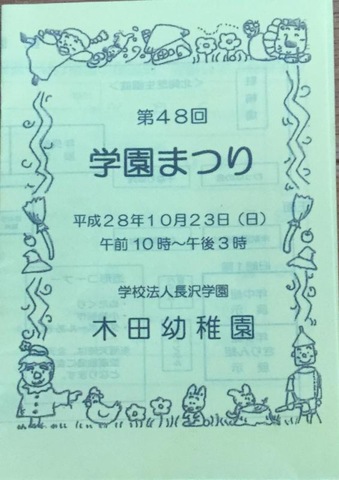 第48回
学園まつり
平成28年10月23日（日）
午前10時～午後3時
学校法人長沢学園
木田幼稚園